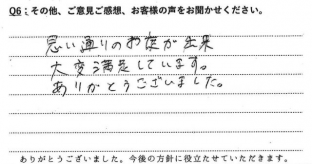 Q6：その他、ご意見ご感想、お客様の声をお聞かせください。
思い通りのお庭が出来
大変満足しています。
ありがとうございました。
ありがとうございました。今後の方針に役立たせていただきます。